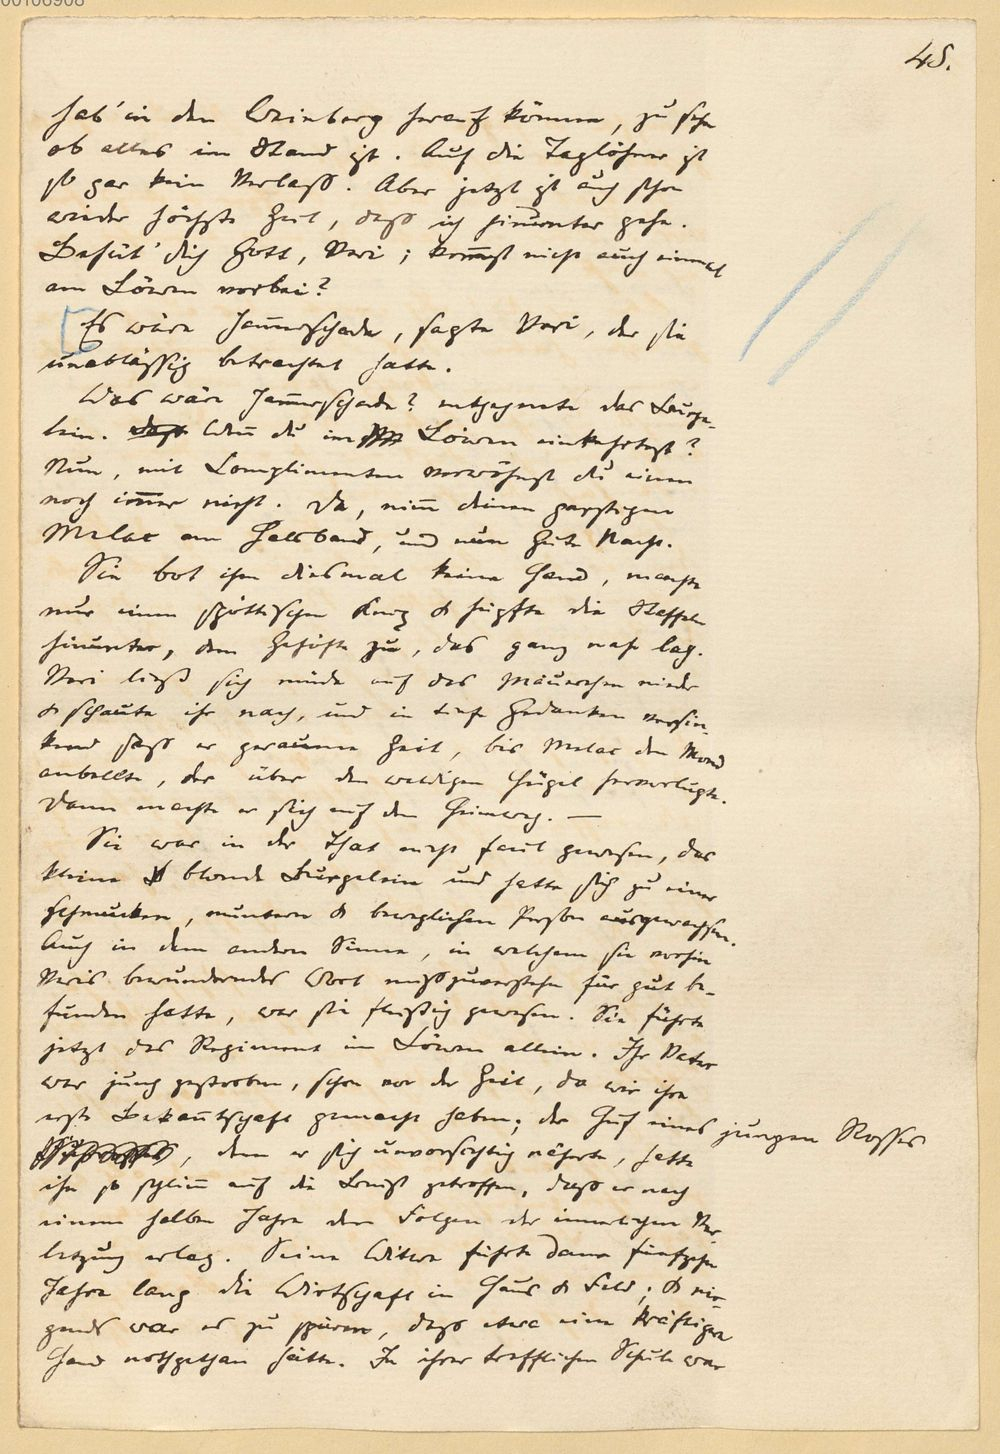 00106908
45.
hab' in den Weinberg herauf können, zu sehn
ob alles im Stand ist. Auf die Taglöhner ist
ja gar kein Verlaß. Aber jetzt ist auch schon
wieder höchste Zeit, daß ich hinunter gehe.
Behüt' dich Gott, Veri; kommst nicht auch einmal
am Löwen vorbei?
Es wäre Jammerschade, sagte Veri, der sie
unablässig betrachtet hatte.
Was wäre Jammerschade? entgegnete das Burge-
lein. Wenn du im Löwen einkehrtest?
Nun, mit Complimenten verwöhnst du einen
noch immer nicht. Da, nimm deinen garstigen
Melac am Halsband, und nun gute Nacht.
Sie bot ihm diesmal keine Hand, machte
nur einen spöttischen Knix & hüpfte die Staffeln
hinunter, dem Gehöfte zu, das ganz nahe lag.
Veri ließ sich müde auf das Mäuerchen nieder
& schaute ihr nach, und in tiefe Gedanken versin-
kend saß er geraume Zeit, bis Melac den Mond
anbellte, der über den waldigen Hügel hervorlugte.
Dann machte er sich auf den Heimweg. —
Sie war in der That nicht faul gewesen, das
kleine blonde Burgelein und hatte sich zu einer
schmucken, muntern & beweglichen Person ausgewachsen.
Auch in dem andern Sinne, in welchem sie vorhin
Veris bewunderndes Wort mißzuverstehn für gut be-
funden hatte, war sie fleißig gewesen. Sie führte
jetzt das Regiment im Löwen allein. Ihr Vater
war jung gestorben, schon vor der Zeit, da wir ihre
erste Bekanntschaft gemacht haben; der Huf eines jungen Rosses
, dem er sich unvorsichtig näherte, hatte
ihn so schlimm auf die Brust getroffen, daß er nach
einem halben Jahre den Folgen der innerlichen Ver-
letzung erlag. Seine Witwe führte dann fünfzehn
Jahre lang die Wirtschaft in Haus & Feld; & nir-
gends war es zu spüren, daß etwa eine kräftigere
Hand nothgethan hätte. In ihrer trefflichen Schule war